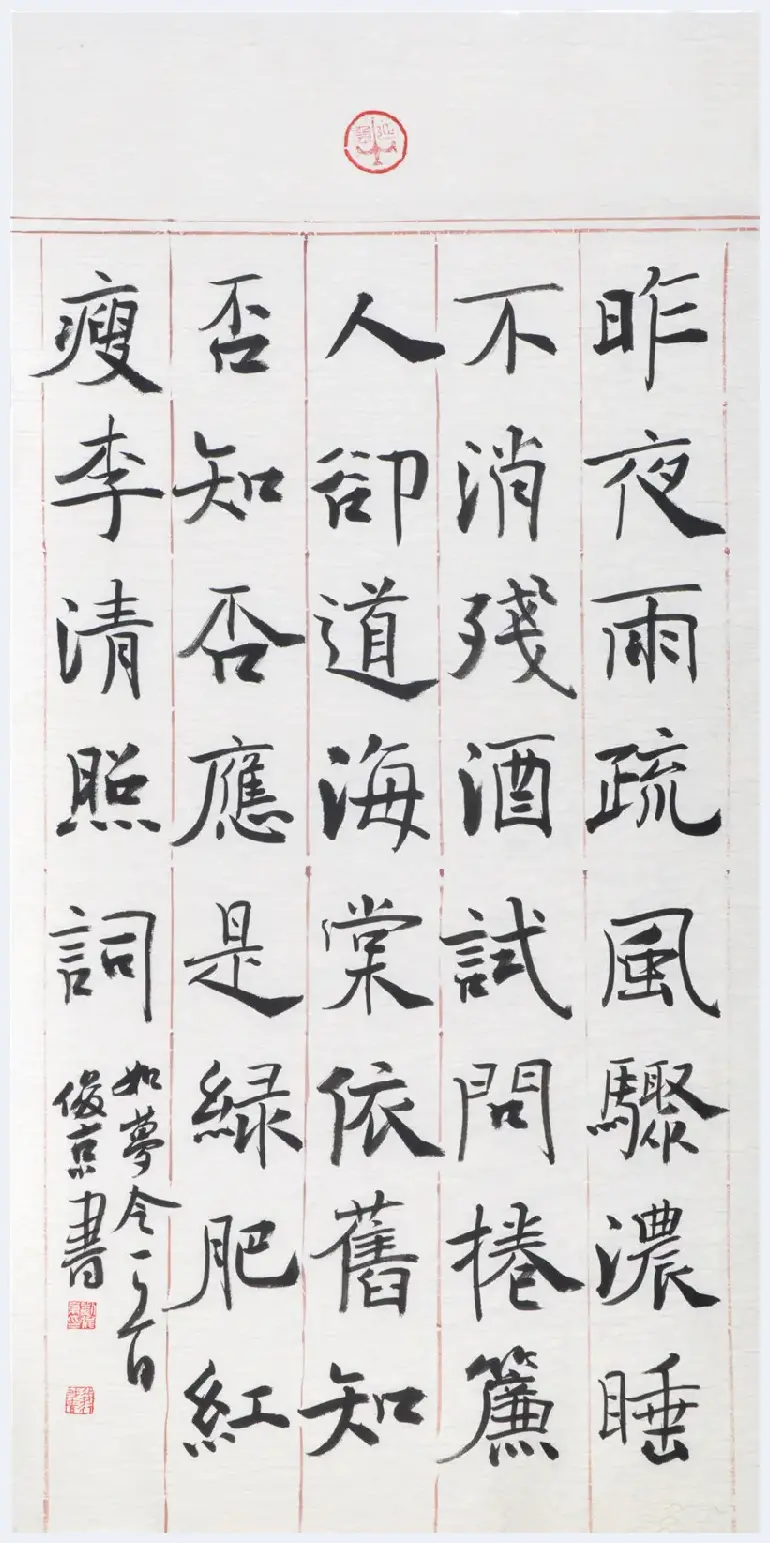 昨夜雨疏風驟濃睡
不消殘酒試問捲簾
人卻道海棠依舊知
否知否應是緑肥紅
瘦李清照詞
如夢令一首
俊京書